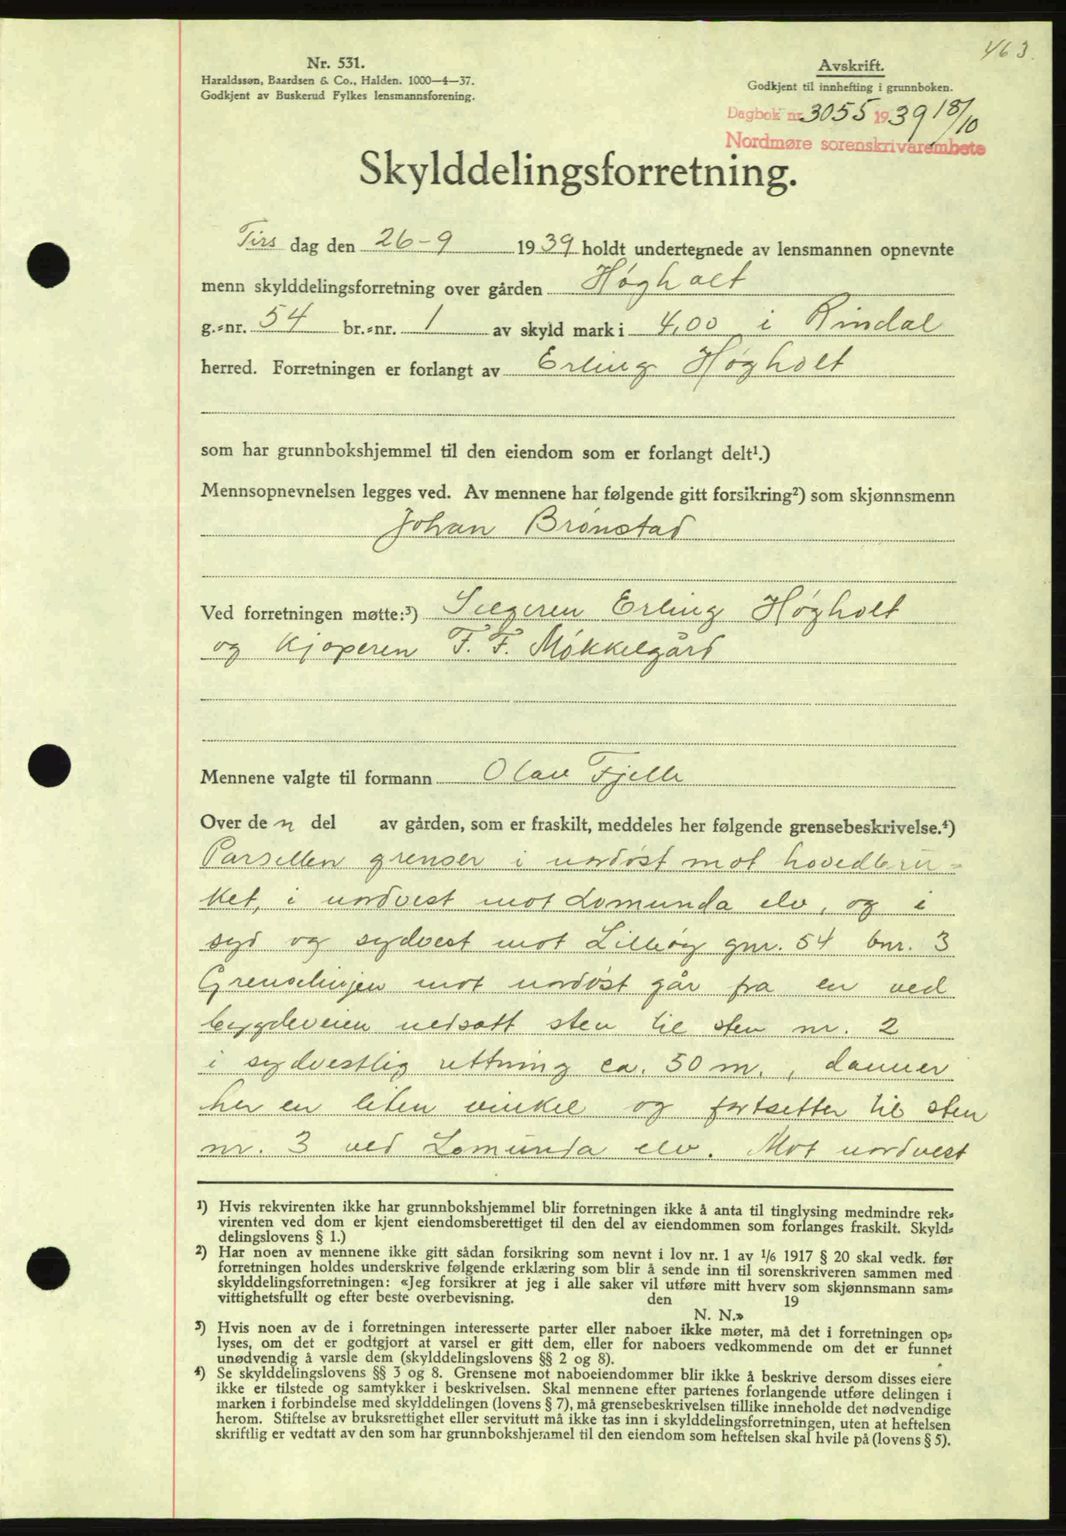 463.
Nr. 531.
Haraldssøn, Baardsen & Co., Halden. 1000—4—37.
Godkjent av Buskerud Fylkes lensmannsforening.
Avskrift.
Godkjent til innhefting i grunnboken.
Dagbok nr. 3055 1939 18/10
Nordmøre sorenskrivarembete
Skylddelingsforretning.
Tirs dag den 26-9 1939 holdt undertegnede av lensmannen opnevnte
menn skylddelingsforretning over gården Høgholt
g.=nr. 54 br.=nr. 1 av skyld mark i 4,00 i Rindal
herred. Forretningen er forlangt av Erling Høgholt
som har grunnbokshjemmel til den eiendom som er forlangt delt¹.)
Mennsopnevnelsen legges ved. Av mennene har følgende gitt forsikring²) som skjønnsmenn
Johan Brønstad
Ved forretningen møtte:³) Selgeren Erling Høgholt
og kjøperen F. F. Møkkelgård
Mennene valgte til formann Olav Fjelle
Over den del av gården, som er fraskilt, meddeles her følgende grensebeskrivelse.⁴)
Parsellen grenser i nordøst mot hovedbru=
ket, i nordvest mot Lomunda elv, og i
syd og sydvest mot Lillhøg gnr. 54 bnr. 3
Grenselinjen mot nordøst går fra en ved
bygdeveien nedsatt sten til sten nr. 2
i sydvestlig rettning ca. 50 m., danner
her en liten vinkel og fortsetter til sten
nr. 3 ved Lomunda elv. Mot nordvest
¹) Hvis rekvirenten ikke har grunnbokshjemmel blir forretningen ikke å anta til tinglysing medmindre rek=
virenten ved dom er kjent eiendomsberettiget til den del av eiendommen som forlanges fraskilt. Skyld=
delingslovens § 1.)
²) Har noen av mennene ikke gitt sådan forsikring som nevnt i lov nr. 1 av 1/6 1917 § 20 skal vedk. før
forretningen holdes underskrive følgende erklæring som blir å sende inn til sorenskriveren sammen med
skylddelingsforretningen: «Jeg forsikrer at jeg i alle saker vil utføre mitt hverv som skjønnsmann sam=
vittighetsfullt og efter beste overbevisning. den 19
N. N.»
³) Hvis noen av de i forretningen interesserte parter eller naboer ikke møter, må det i forretningen op=
lyses, om det er godtgjort at varsel er gitt dem, eller for naboers vedkommende om det er funnet
unødvendig å varsle dem (skylddelingslovens §§ 2 og 8).
⁴) Se skylddelingslovens §§ 3 og 8. Grensene mot naboeiendommer blir ikke å beskrive dersom disses eiere
ikke er tilstede og samtykker i beskrivelsen. Skal mennene efter partenes forlangende utføre delingen i
marken i forbindelse med skylddelingen (lovens § 7), må grensebeskrivelsen tillike inneholde det nødvendige
herom. Stiftelse av bruksrettighet eller servitutt må ikke tas inn i skylddelingsforretningen, uten at heftelsen
skriftlig er vedtatt av den som har grunnbokshjemmel til den eiendom som heftelsen skal hvile på (lovens § 5).